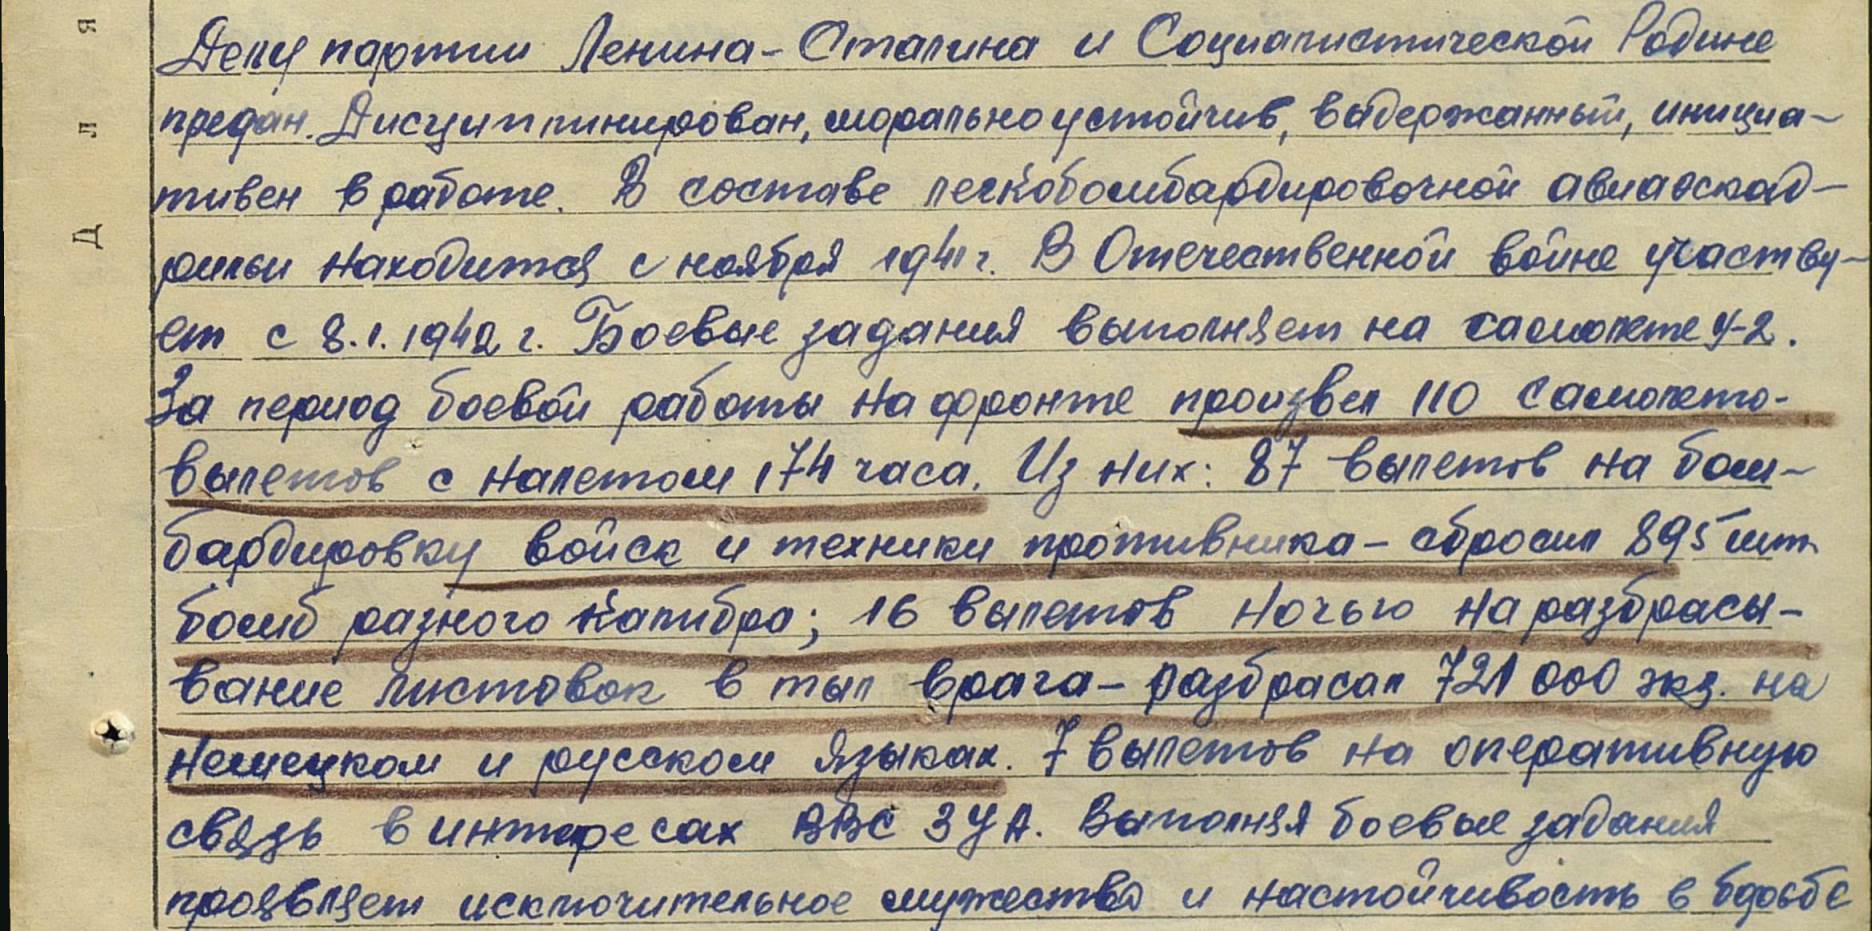 Для
Делу партии Ленина-Сталина и Социалистической Родине
предан. Дисциплинирован, морально устойчив, выдержанный, инициа-
тивен в работе. В составе легкобомбардировочной авиаэскад-
рильи находится с ноября 1941 г. В Отечественной войне участву-
ет с 8.1.1942 г. Боевые задания выполняет на самолете У-2.
За период боевой работы на фронте произвел 110 самолето-
вылетов с налетом 174 часа. Из них: 87 вылетов на бом-
бардировку войск и техники противника - сбросил 895 шт.
бомб разного калибра; 16 вылетов ночью на разбрасы-
вание листовок в тыл врага - разбрасал 721 000 экз. на
немецком и русском языках. 7 вылетов на оперативную
связь в интересах ВВС 3 УА. Выполняя боевые задания
проявляет исключительное мужество и настойчивость в борьбе